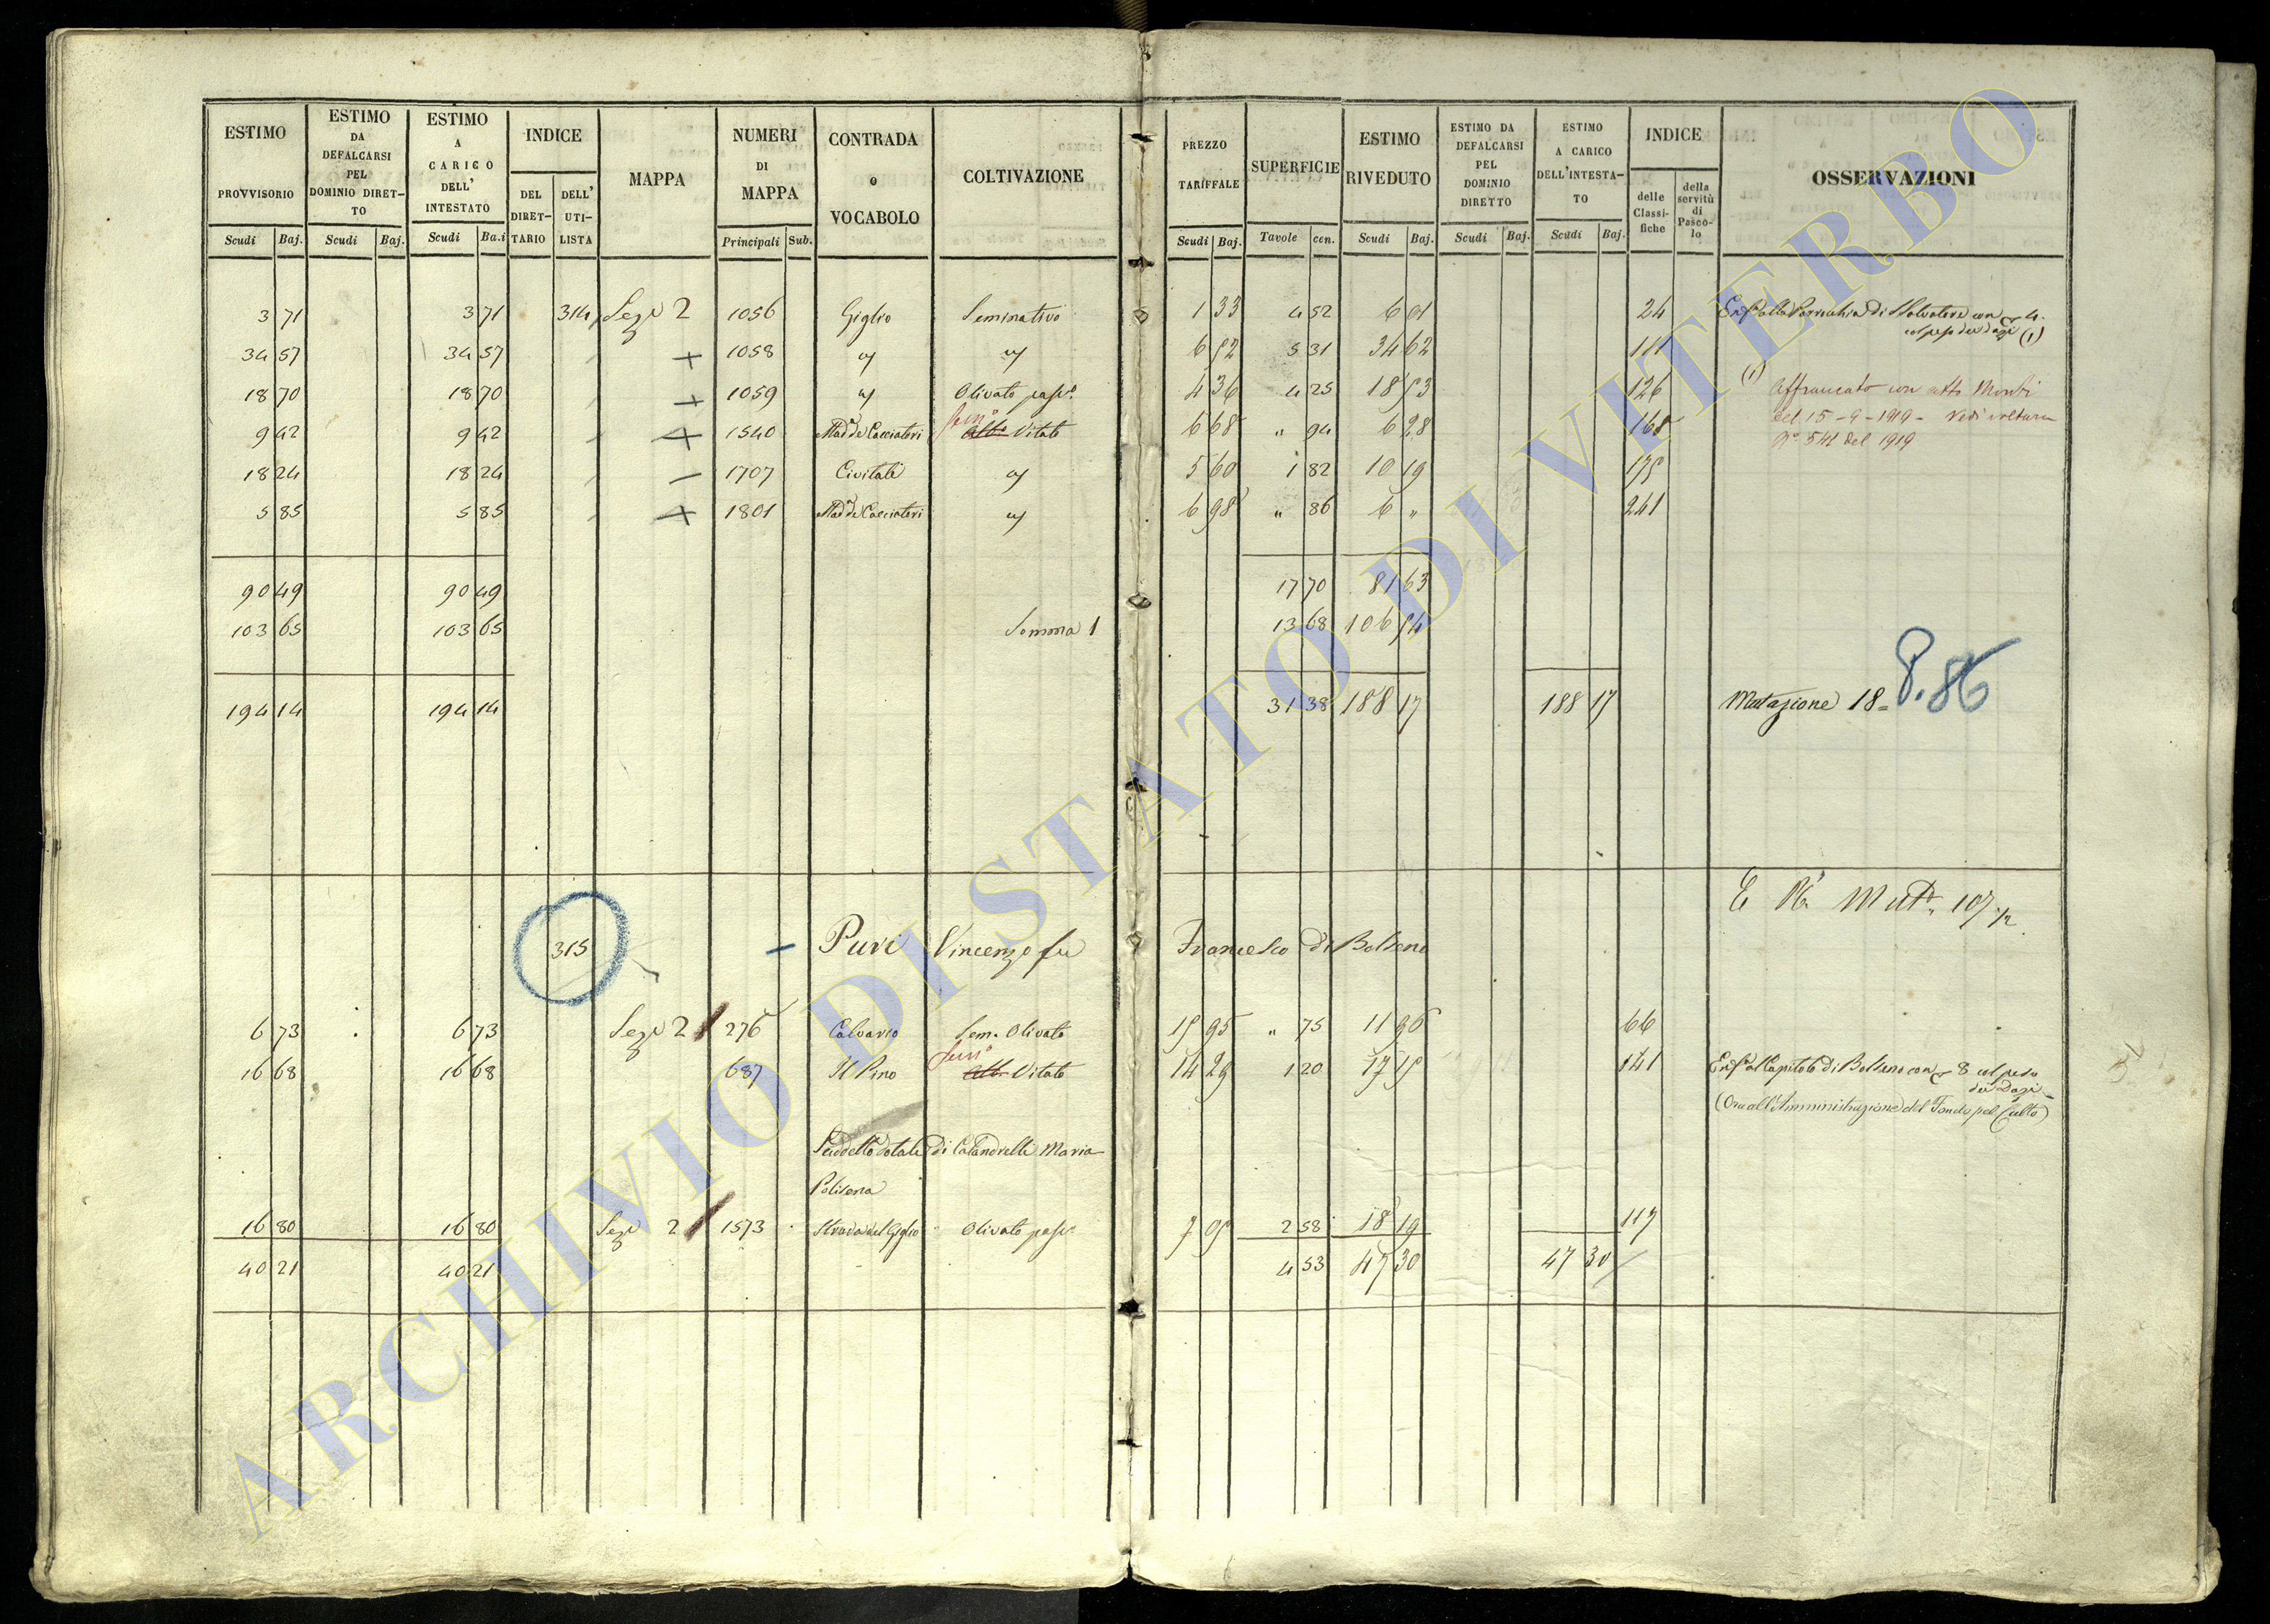 ESTIMO PROVVISORIO Scudi Baj. | ESTIMO DA DEFALCARSI PEL DOMINIO DIRET-TO Scudi Baj. | ESTIMO A CARICO DELL' INTESTATO Scudi Ba.i | INDICE DEL DIRET-TARIO DELL' UTI-LISTA | MAPPA | NUMERI DI MAPPA Principali Sub. | CONTRADA o VOCABOLO | COLTIVAZIONE | PREZZO TARIFFALE Scudi Baj. | SUPERFICIE Tavole cen. | ESTIMO RIVEDUTO Scudi Baj. | ESTIMO DA DEFALCARSI PEL DOMINIO DIRETTO Scudi Baj. | ESTIMO A CARICO DELL'INTESTA-TO Scudi Baj. | INDICE delle Classi-fiche della servitù di Pasco-lo | OSSERVAZIONI
3 71 3 71 314 Seze 2 1056 Giglio Seminativo 1 33 4 52 6 01 24 Enfa alla Parrocchia di S Salvatore con 4.
col peso dei dazi (1)
34 57 34 57 + 1058 " " 6 52 5 31 34 62 111
18 70 18 70 + 1059 " Olivato pasc. 4 36 4 25 18 53 126 (1) Affrancato con atto Monti
del 15-9-1919 - Vedi voltura
No 541 del 1919
9 42 9 42 + 1540 Mad de Cacciatori Semo Albo Vitato 6 68 " 94 6 28 168
18 24 18 24 - 1707 Civitale " 5 60 1 82 10 19 175
5 85 5 85 + 1801 Mad de Cacciatori " 6 98 " 86 6 " 241
90 49 90 49 17 70 81 63
103 65 103 65 Somma 1 13 68 106 54
194 14 194 14 31 38 188 17 188 17 Mutazione 18 = 8.86
E Mut. 107
315 - Puri Vincenzo fu Francesco di Bolsena
6 73 6 73 Seze 2 276 Calvario Sem. Olivato 15 95 " 75 11 96 66
16 68 16 68 687 Il Pino Semo Albo Vitato 14 29 1 20 17 15 141 Enfa al Capitolo di Bolsena con 8 col peso
dei Dazi
(Ora all'Amministrazione del Fondo pel Culto)
Suddetto dotale di Calandrelli Maria
Polisena
16 80 16 80 Seze 2 1573 Strada del Giglio Olivato pasc. 7 05 2 58 18 19 117
40 21 40 21 4 53 47 30 47 30
ARCHIVIO DI STATO DI VITERBO